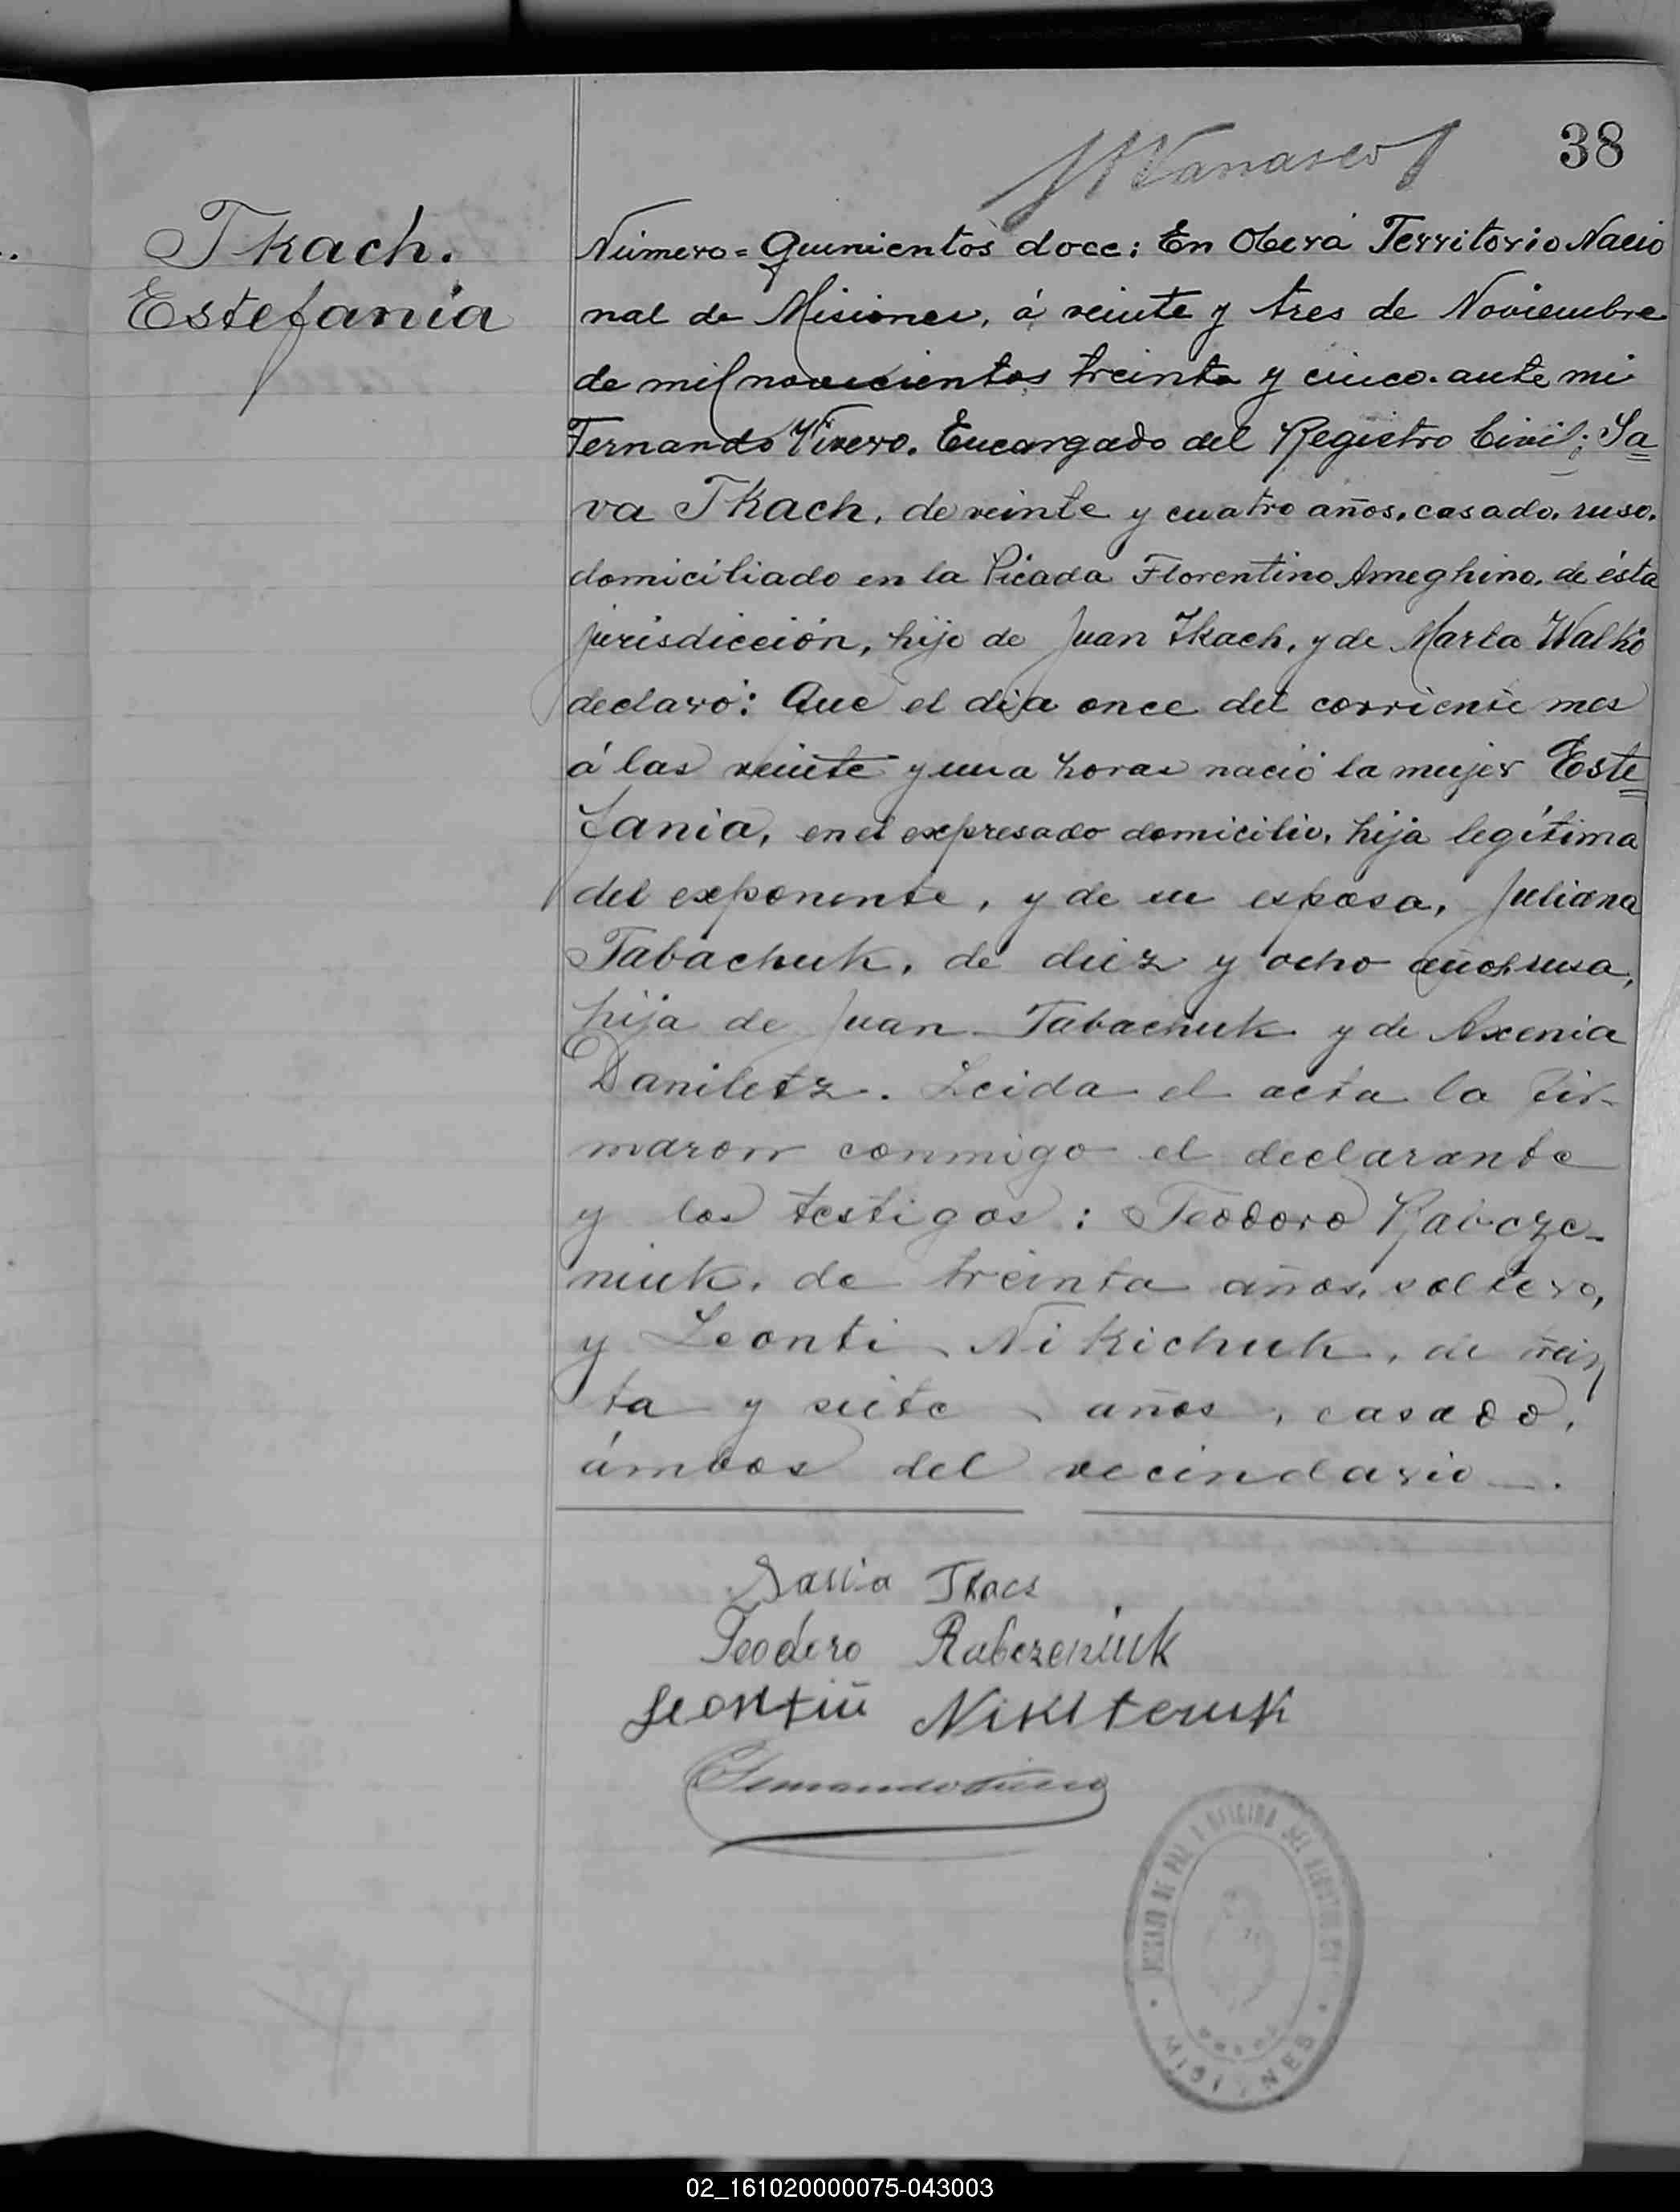 38
Tkach.
Estefanía
Número = Quinientos doce: En Oberá Territorio Nacio
nal de Misiones, á veinte y tres de Noviembre
de mil novecientos treinta y cinco. ante mi
Fernando Vivero. Encargado del Registro Civil; Sa=
va Tkach, de veinte y cuatro años, casado, ruso.
domiciliado en la Picada Florentino Ameghino, de ésta
jurisdicción, hijo de Juan Tkach, y de Marta Walko
declaró: Que el dia once del corriente mes
á las veinte y una horas nació la mujer Este=
fania, en el expresado domicilio, hija legítima
del exponente, y de su esposa, Juliana
Tabachuk, de diez y ocho años, rusa,
hija de Juan Tabachuk y de Axenia
Daniletz. Leida el acta la fir-
maron conmigo el declarante
y los testigos: Teodoro Rabcze-
niuk, de treinta años, soltero,
y Leonti Nikichuk, de trein
ta y siete años, casado,
ámbos del vecindario.
Tkacs
Teodoro Rabczeniuk
MISIONES
02_161020000075-043003